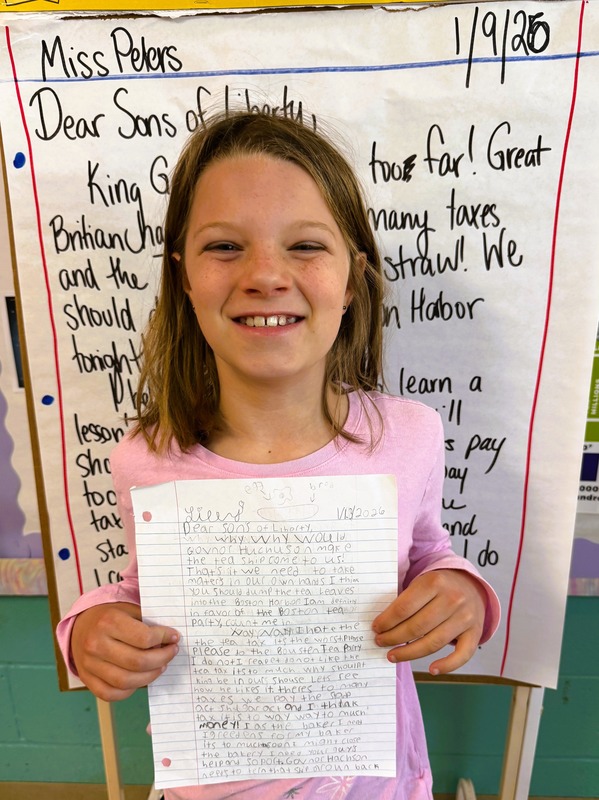 Miss Peters 1/9/26
Dear Sons of Liberty,
King G too far! Great
Britian ha many taxes
and the straw! We
should n Habor
tonight
learn a
lesson ill
sho s pay
too pay
tax and
sta I do
I ca
MILLIONS
Lilly 1/13/2026
Dear Sons of Liberty,
Why Why Why Would
Govnor Huchuson make
the tea ship come to us!
Thats it we need to take
maters in our own hands I think
you should dump the tea leaves
into the Boston Harbor I am
in favor of the Boston tea
Party, count me in.
Nay, Nay I hate the
the tea tax its the worst Please
Please to the Bowsten Tea Party
I do not I reapet do not like the
tea tax its to much why should
king be in our shouse lets see
how he likes it theres to many
taxes we pay the
act shugar act and I think
tax it is to way way to much
money! I as the baker I need
Igreedens for my baker
its to much soon I might close
the bakery I need your guys
help and Govnor Huchson
needs to torn that ship aroun back